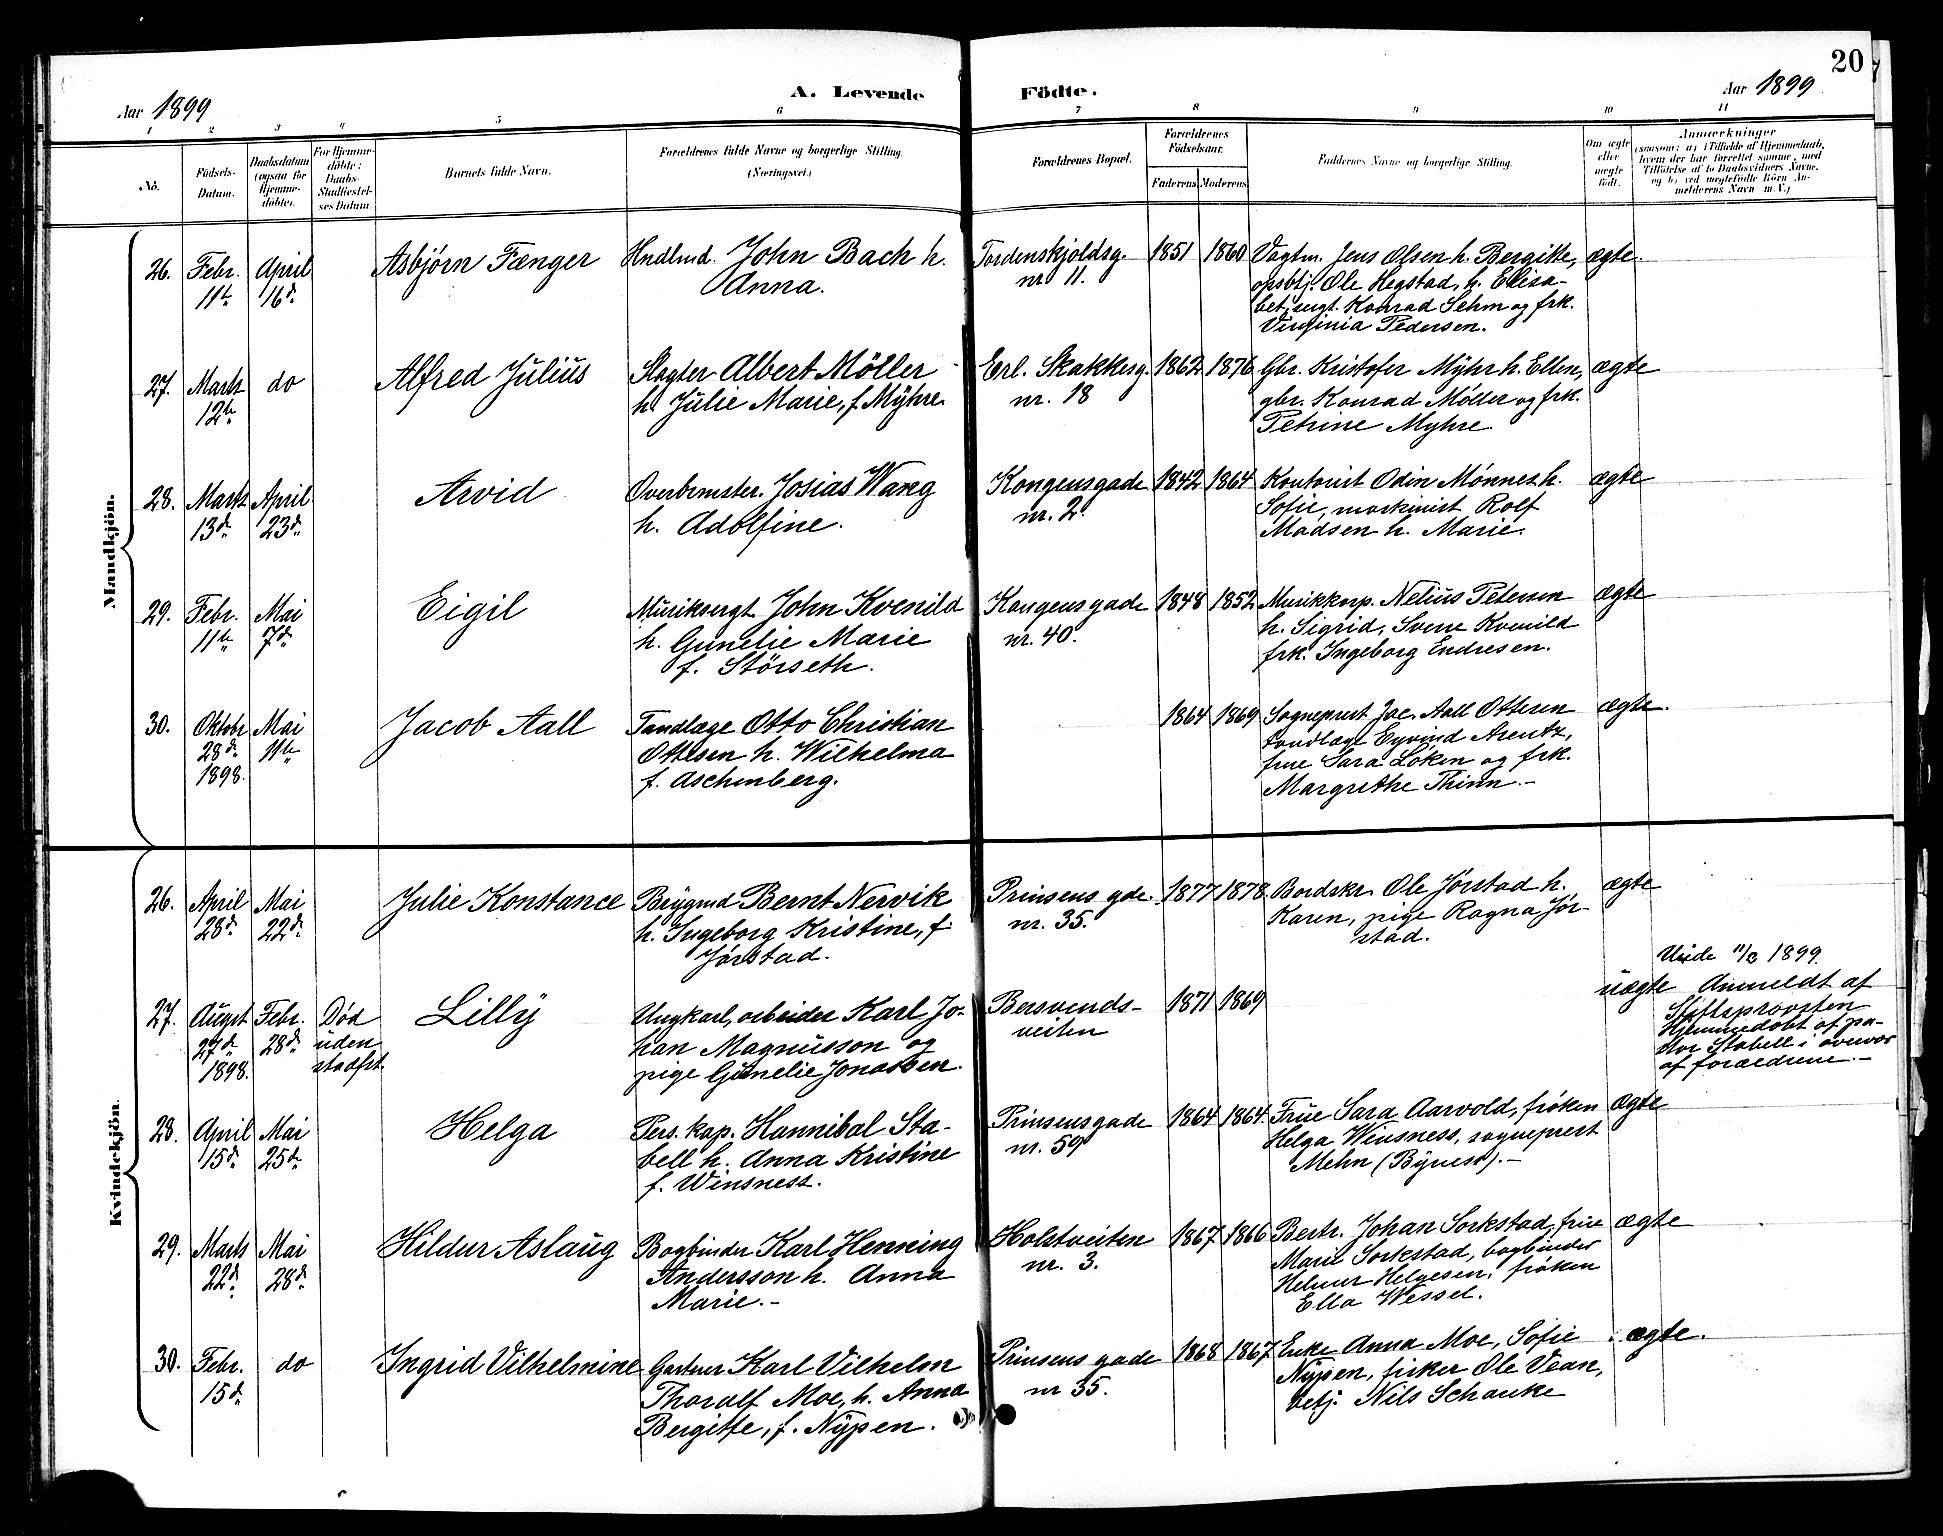 20
Aar 1899
A. Levende Födte.
Aar 1899
1 2 3 4 5 6 7 8 9 10 11
No.
Födsels-
Datum.
Daabsdatum
(ogsaa for
Hjemme-
döbte).
For Hjemme-
döbte:
Daabs-
Stadfæstel-
ses Datum
Barnets fulde Navn.
Forældrenes fulde Navne og borgerlige Stilling.
(Næringsvei.)
Forældrenes Bopæl.
Forældrenes
Födselsaar.
Faderens Moderens
Faddernes Navne og borgerlige Stilling.
Om ægte
eller
uægte
födt.
Anmærkninger
(saasom: a) i Tilfælde af Hjemmedaab,
hvem der har forrettet samme, med
Tilföielse af to Daabsvidners Navne.
og b) ved uægtefödte Börn An-
melderens Navn m. V.)
Mandkjön.
26. Febr. 11te
April 16de
Asbjørn Fænger
Hndlmd. John Bach h.
Anna.
Tordenskjoldsg.
nr 11.
1851 1860
Vagtm. Jens Olsen h. Bergitte,
opsbtj. Ole Hegstad, h. Elisa-
bet, sergt. Konrad Sehm og frk.
Virginia Pedersen.
ægte.
27. Marts 12te
do
Alfred Julius
Slagter Albert Möller
h. Julie Marie, f. Mÿhre
Erl. Skakkesg
nr. 18
1862 1876
Gbr. Kristofer Mÿhr h. Ellen,
gbr. Konrad Møller og frk.
Petrine Myhre.
ægte
28. Marts 13de
April 23de
Arvid
Overbrmster. Josias Wang
h. Adolfine.
Kongensgade
nr. 2.
1842 1864
Kontorist Odin Mønnes h.
Sofie, maskinist Rolf
Madsen h. Marie.
ægte
29. Febr. 11te
Mai 7de
Eigil
Musiksergt John Kvenild
h. Gunelie Marie
f. Störseth.
Kongensgade
nr. 40.
1848 1852
Musikkorp. Nelius Petersen
h. Sigrid, Sverre Kvenild
frk. Ingeborg Endresen.
ægte
30. Oktobr 28de 1898.
Mai 11te
Jacob Aall
Tandlæge Otto Christian
Ottesen h. Wilhelma
f. Aschenberg.
1864 1869
Sogneprest Jac. Aall Ottesen
tandlæge Eyvind Arentz,
frue Sara Løken og frk.
Margrethe Thinn.-
ægte.
Kvindekjön.
26. April 28de
Mai 22de
Julie Konstance
Brygmd Bernt Nervik
h. Ingeborg Kristine, f.
Jørstad.
Prinsens gde.
nr. 35.
1877 1878
Bordskr. Ole Jørstad h.
Karen, pige Ragna Jør-
stad.
ægte
27. Augst 27de 1898.
Febr. 28de
Død
uden
stadfst.
Lilly
Ungkarl, arbeider Karl Jo-
han Magnusson og
pige Gunelie Jonassen.
Bersvends-
veiten
1871 1869
uægte
11/3 1899.
Anmeldt af
Stiftsprovsten
Hjemmedøbt af pa-
stor Stabell i overvær
af forældrene.-
28. April 15de
Mai 25de
Helga
Pers. kap. Hannibal Sta-
bell h. Anna Kristine
f. Winsness.
Prinsensgade
nr. 59
1864 1864.
Frue Sara Aarvold, frøken
Helga Winsness, sogneprest
Mehn (Bÿness).-
ægte
29. Marts 22de
Mai 28de
Hildur Aslaug
Bogbinder Karl Henning
Andersson h. Anna
Marie.-
Holstveiten
nr. 3.
1867 1866
Bestr. Johan Sorkstad, frue
Marie Sorkstad, bogbinder
Helmer Helgesen, frøken
Ella Wessel.
ægte
30. Febr. 15de
do
Ingrid Vilhelmine
Gartner Karl Vilhelm
Thoralf Moe, h. Anna
Bergitte, f. Nÿpen.
Prinsens gade
nr 35.
1868 1867
Enke Anna Moe, Sofie
Nÿpen, fisker Ole Vean,
betj. Nils Schanke
ægte.